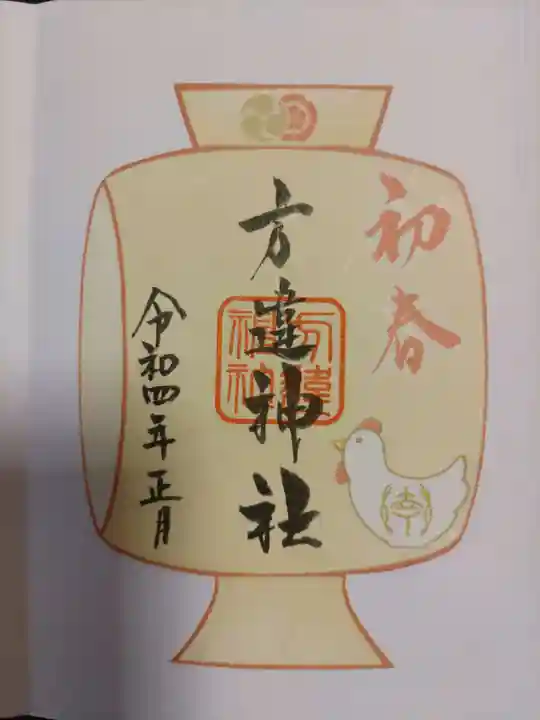 初春
方違神社
方違
神社
令和四年正月
幸